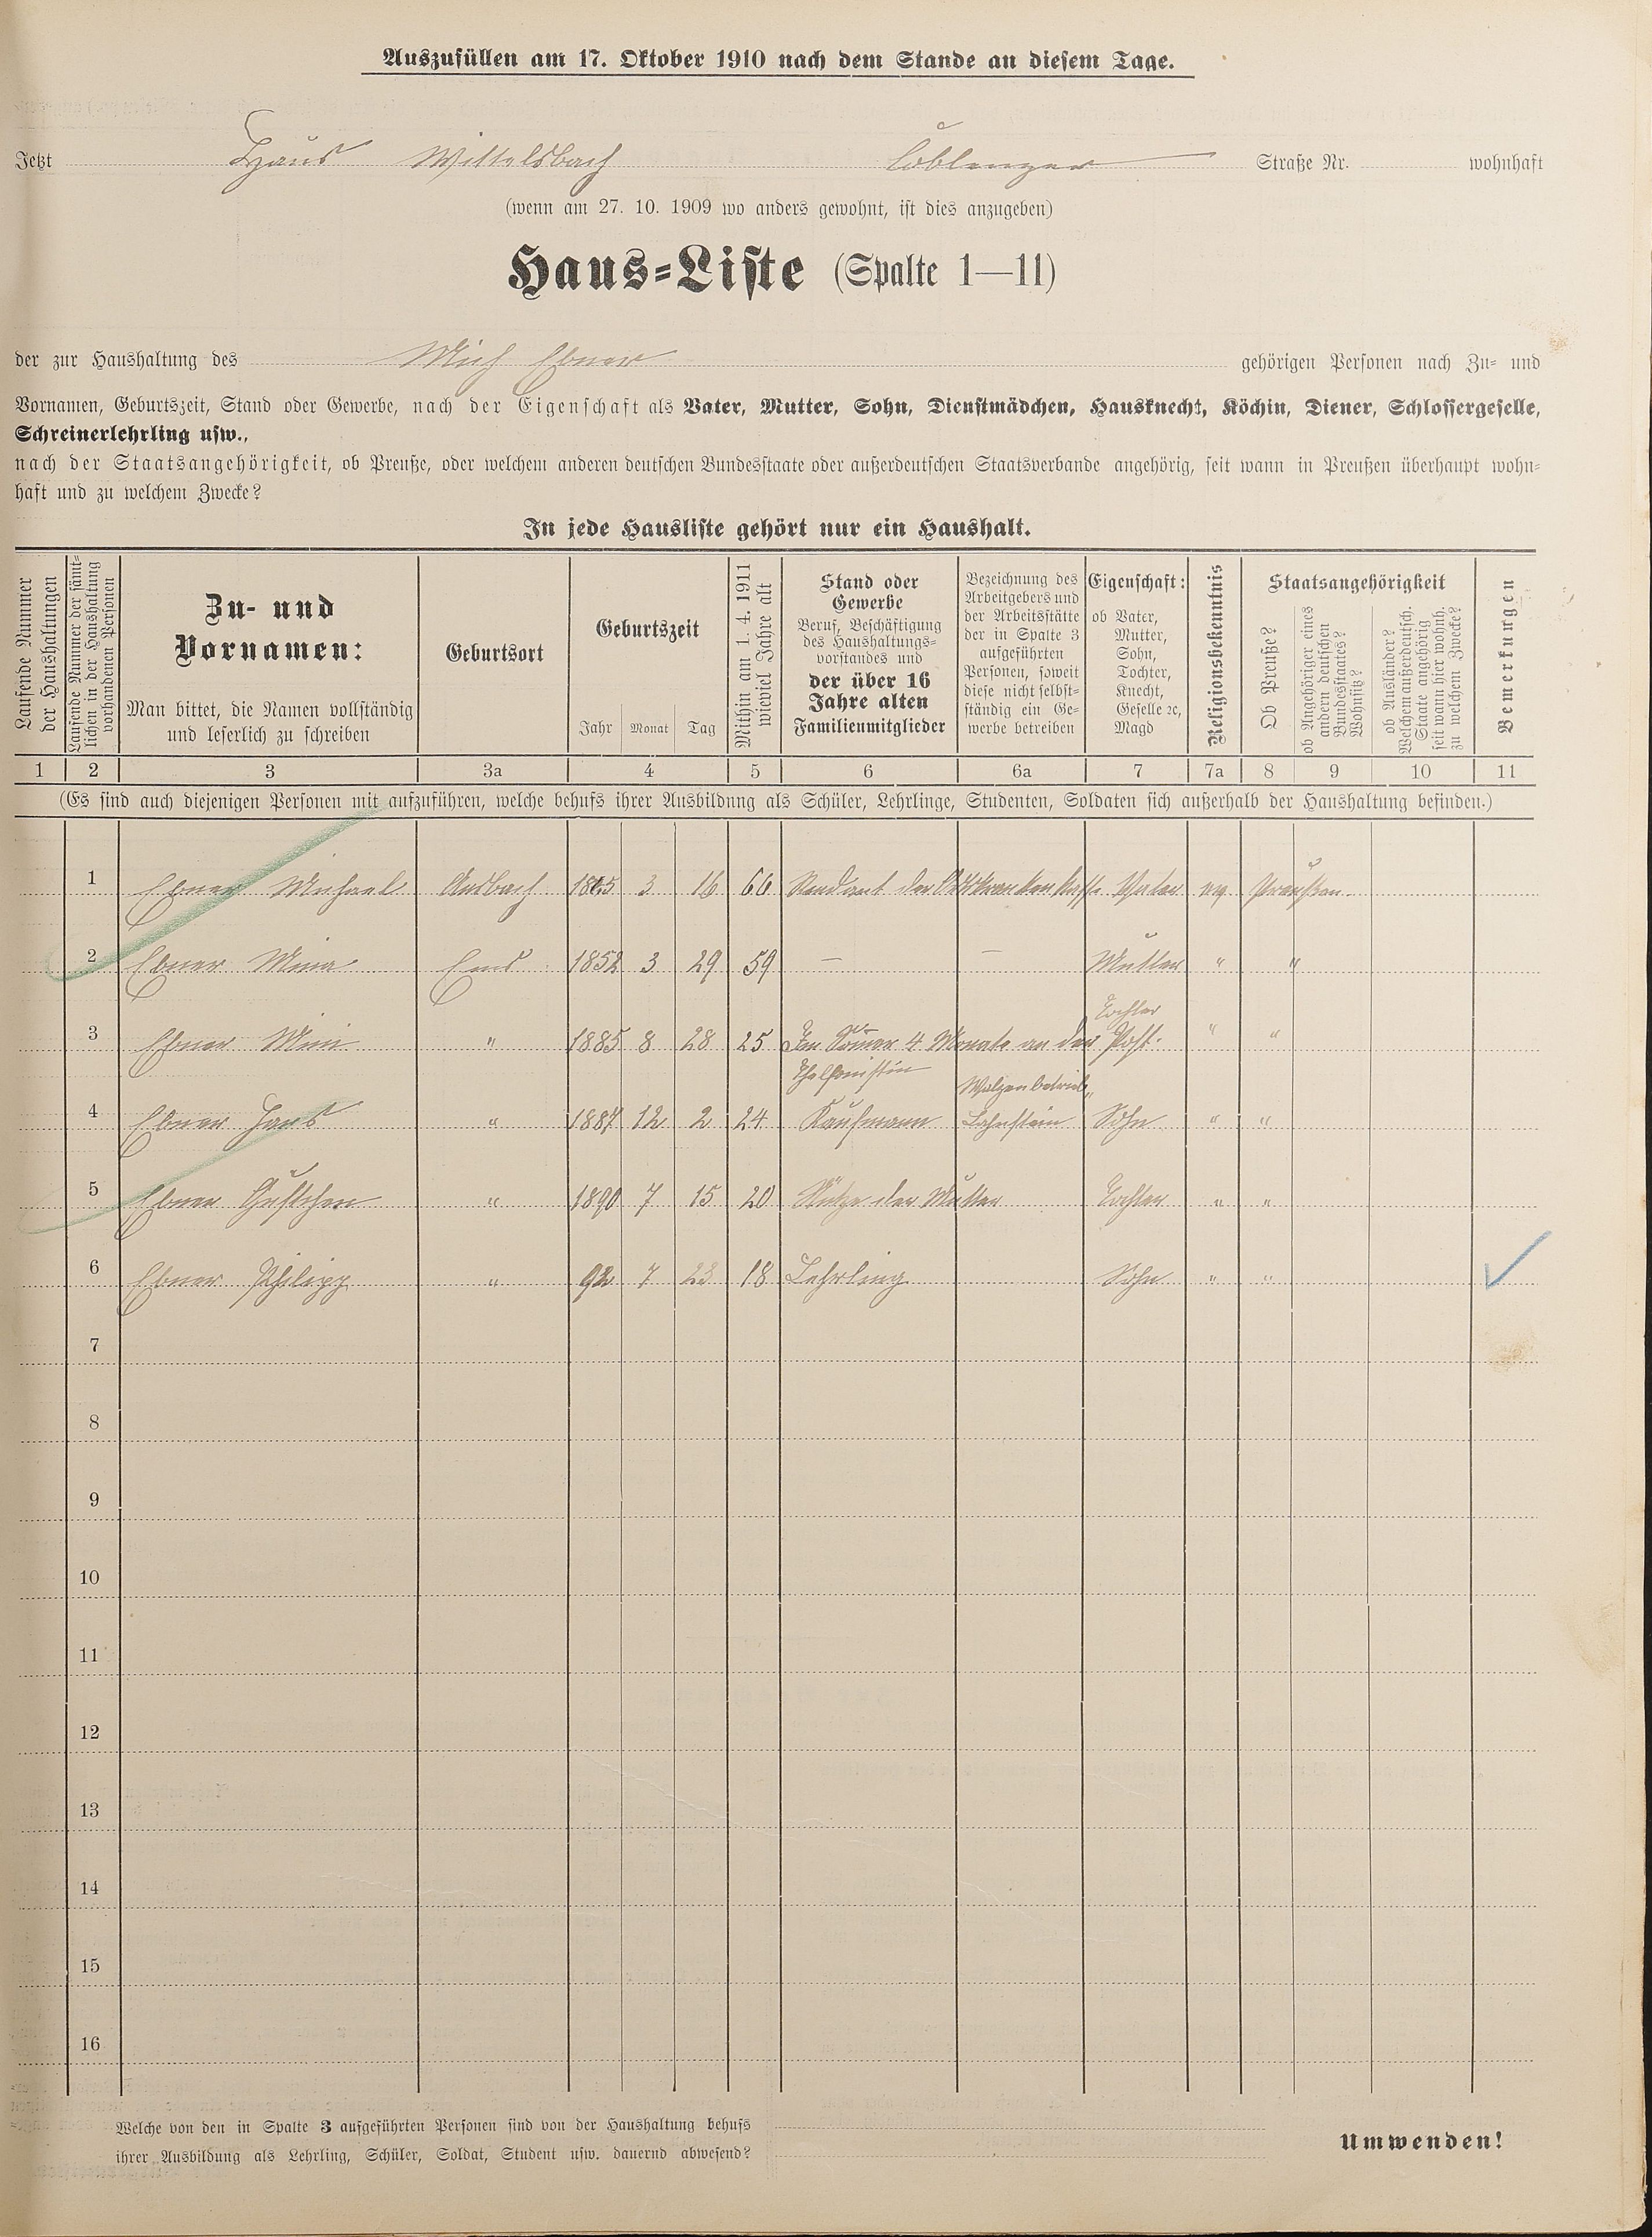 Auszufüllen am 17. Oktober 1910 nach dem Stande an diesem Tage.
Jetzt Haus Wittelsbach Coblenzer Straße Nr. wohnhaft
(wenn am 27. 10. 1909 wo anders gewohnt, ist dies anzugeben)
Haus-Liste (Spalte 1—11)
der zur Haushaltung des Mich Ebner gehörigen Personen nach Zu- und
Vornamen, Geburtszeit, Stand oder Gewerbe, nach der Eigenschaft als Vater, Mutter, Sohn, Dienstmädchen, Hausknecht, Köchin, Diener, Schlossergeselle,
Schreinerlehrling usw.,
nach der Staatsangehörigkeit, ob Preuße, oder welchem anderen deutschen Bundesstaate oder außerdeutschen Staatsverbande angehörig, seit wann in Preußen überhaupt wohn-
haft und zu welchem Zwecke?
In jede Hausliste gehört nur ein Haushalt.
Laufende Nummer
der Haushaltungen
Laufende Nummer der sämt-
lichen in der Haushaltung
vorhandenen Personen
Zu- und
Vornamen:
Man bittet, die Namen vollständig
und leserlich zu schreiben
Geburtsort
Geburtszeit
Jahr Monat Tag
Mithin am 1. 4. 1911
wieviel Jahre alt
Stand oder
Gewerbe
Beruf, Beschäftigung
des Haushaltungs-
vorstandes und
der über 16
Jahre alten
Familienmitglieder
Bezeichnung des
Arbeitgebers und
der Arbeitsstätte
der in Spalte 3
aufgeführten
Personen, soweit
diese nicht selbst-
ständig ein Ge-
werbe betreiben
Eigenschaft:
ob Vater,
Mutter,
Sohn,
Tochter,
Knecht,
Geselle ꝛc,
Magd
Religionsbekenntnis
Staatsangehörigkeit
Ob Preuße?
ob Angehöriger eines
andern deutschen
Bundesstaates?
Wohnsitz?
ob Ausländer?
Welchem außerdeutsch.
Staate angehörig
seit wann hier wohnh.
zu welchem Zwecke?
Bemerkungen
1 2 3 3a 4 5 6 6a 7 7a 8 9 10 11
(Es sind auch diejenigen Personen mit aufzuführen, welche behufs ihrer Ausbildung als Schüler, Lehrlinge, Studenten, Soldaten sich außerhalb der Haushaltung befinden.)
1 Ebner Michael Ansbach 1845 3 16 66 Rendant der Ortskrankenkasse Vater ev Preußen
2 Ebner Mina Ems 1852 3 29 59 — — Mutter " "
Tochter
3 Ebner Mini " 1885 8 28 25 Im Somer 4 Monate an der Post. " "
Thelfonistin Walzenbetrieb
4 Ebner Hans " 1887 12 2 24 Kaufmann Lahnstein Sohn " "
5 Ebner Gustchen " 1890 7 15 20 Stütze der Mutter Tochter " "
6 Ebner Philipp " 92 7 23 18 Lehrling Sohn " "
7
8
9
10
11
12
13
14
15
16
Welche von den in Spalte 3 aufgeführten Personen sind von der Haushaltung behufs
ihrer Ausbildung als Lehrling, Schüler, Soldat, Student usw. dauernd abwesend?
Umwenden!